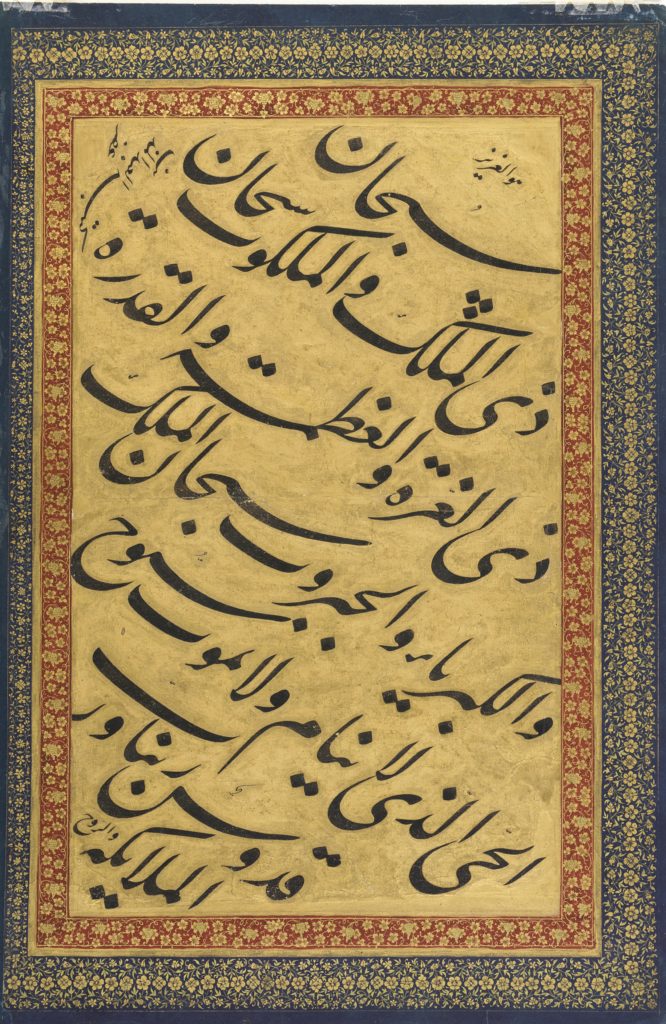 هو العزیز
سبحان
ذی الملک والملکوت سبحان
ذی العزة والعظمة والقدرة
والکبریاء والجبروت سبحان الملک
الحی الذی لا ینام ولا یموت سبوح
قدوس ربنا ورب
الملایکه والروح